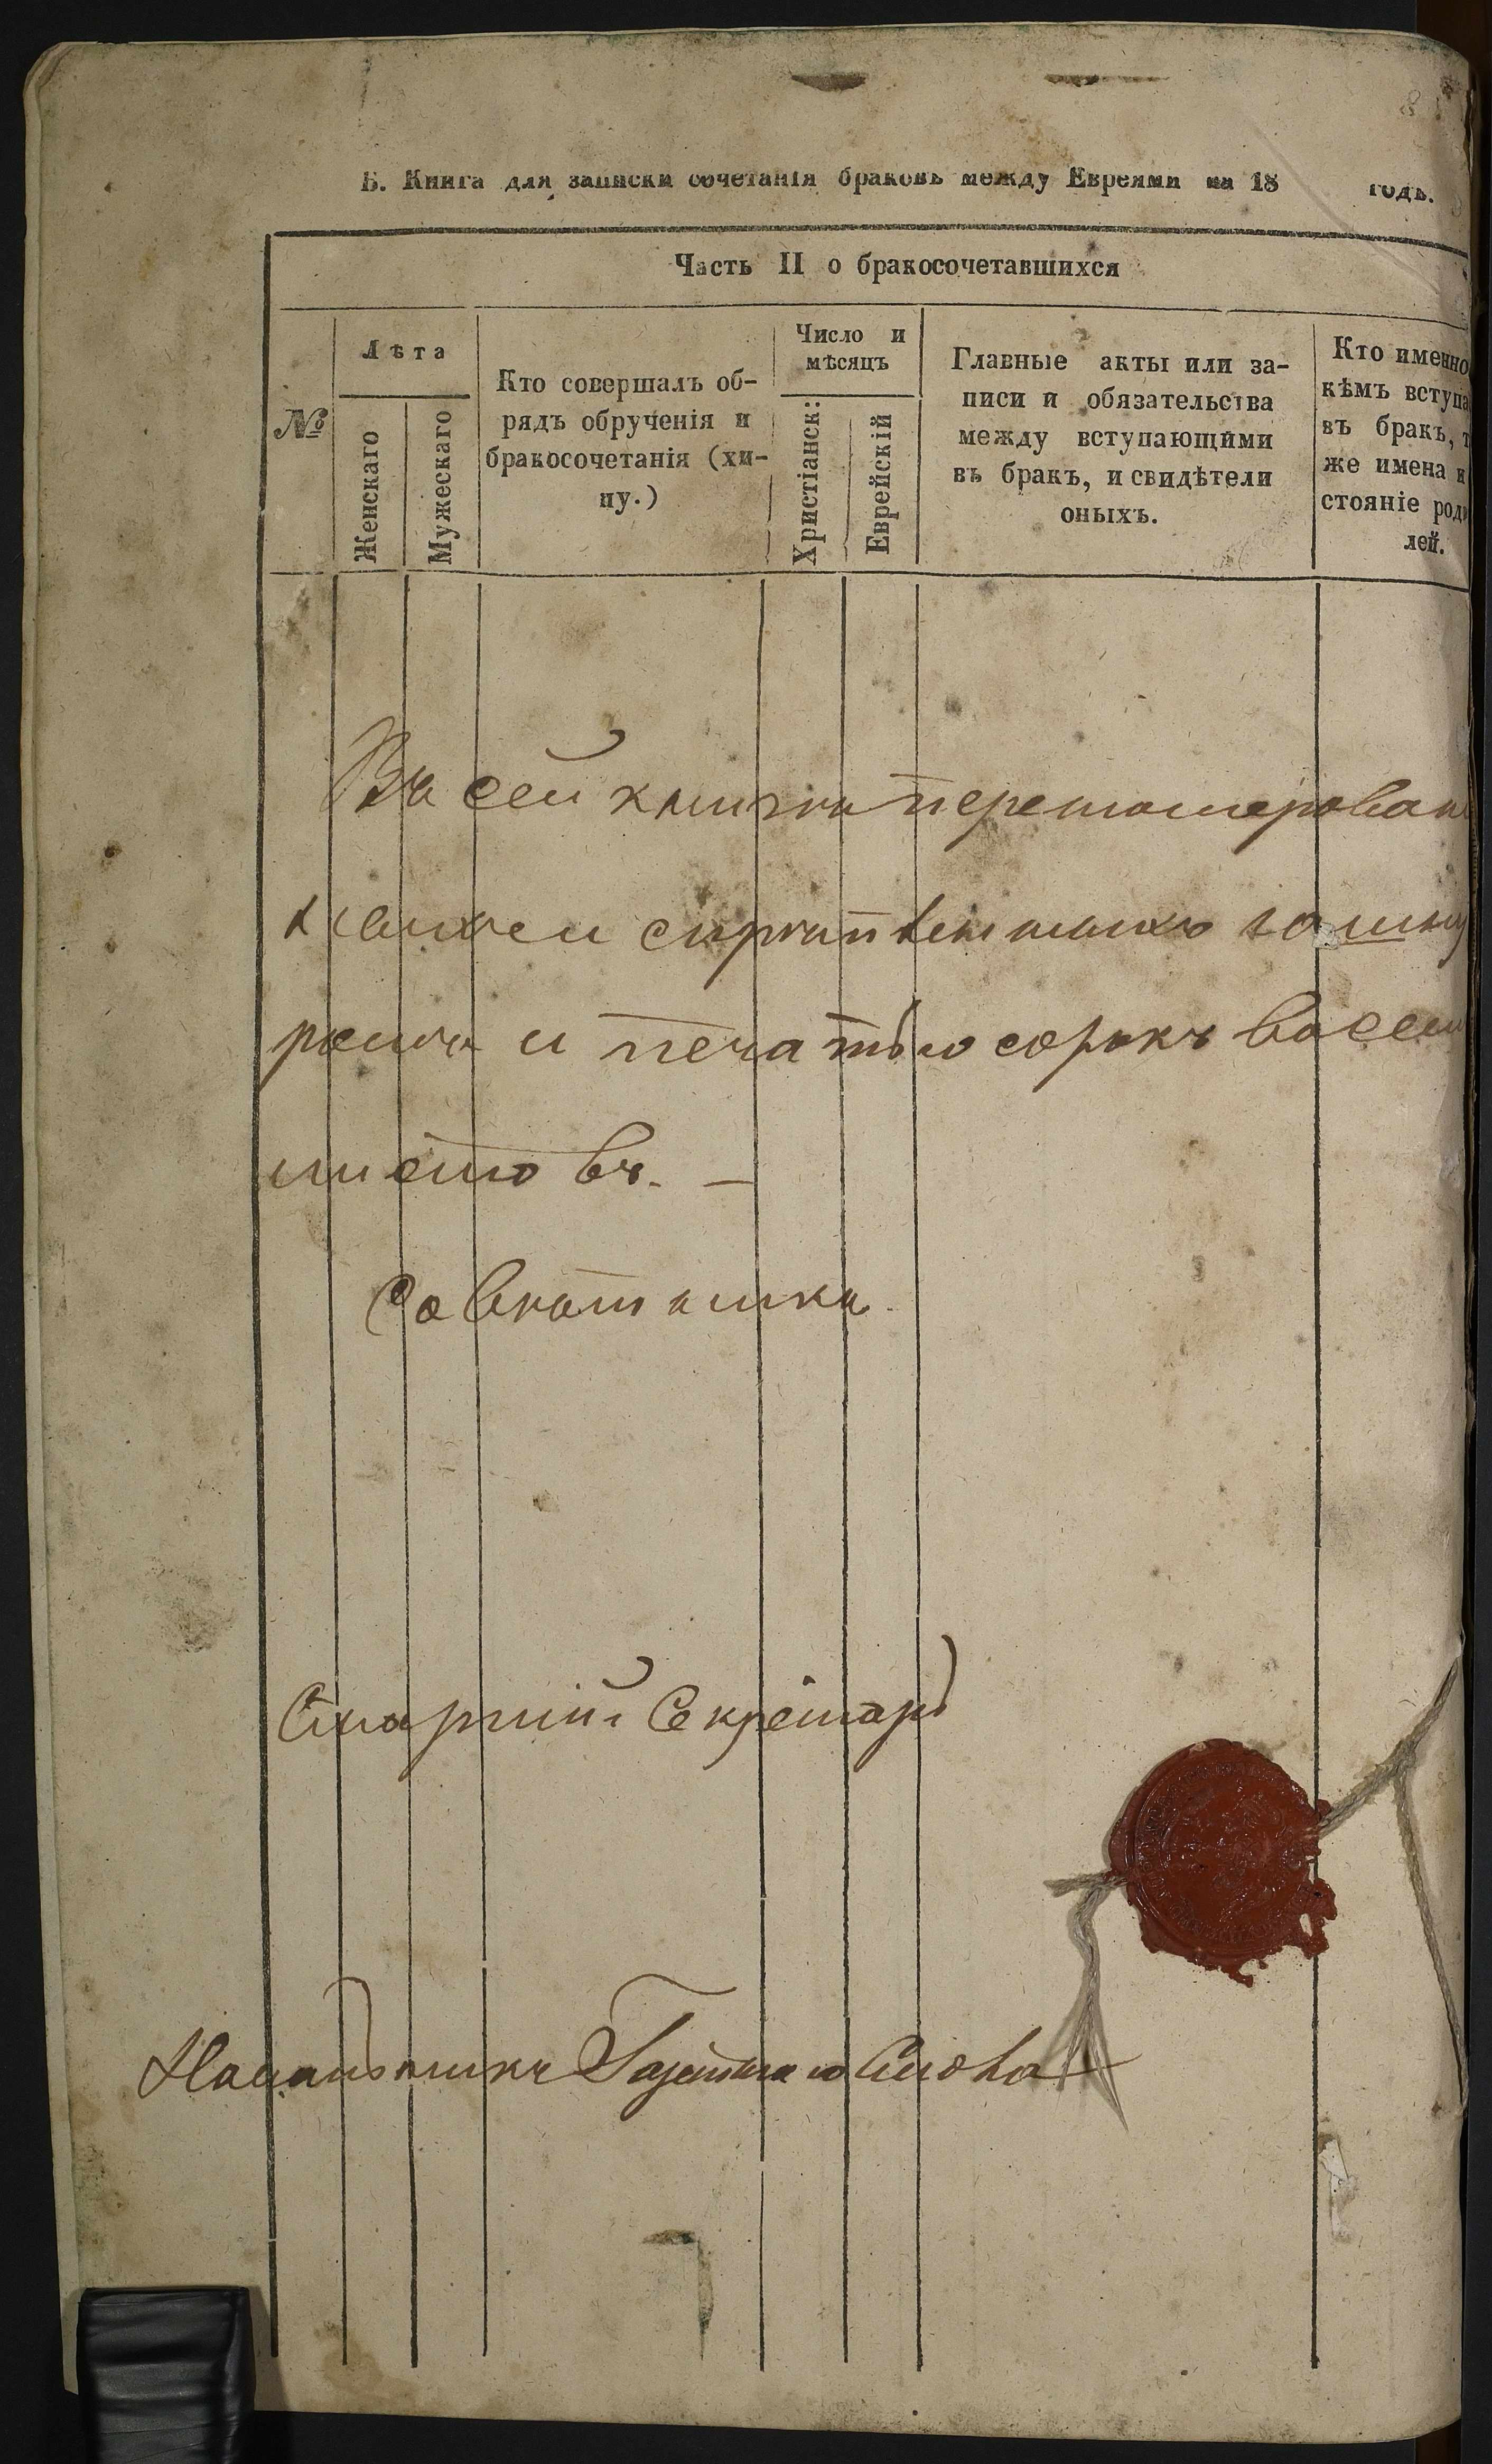 Б. Книга для записки сочетанія браковъ между Евреями на 18 годъ.
Часть II о бракосочетавшихся
№
Лѣта
Женскаго
Мужескаго
Кто совершалъ об-
рядъ обрученія и
бракосочетанія (хи-
пу.)
Число и
мѣсяцъ
Христіанск:
Еврейскій
Главные акты или за-
писи и обязательства
между вступающими
въ бракъ, и свидѣтели
оныхъ.
Кто именно
кѣмъ вступа
въ бракъ, т
же имена и
стояніе роди
лей.
Въ сей книги переномерован
скрѣпленныхъ шну
ромъ и печатью сорокъ восем
листовъ. —
Совѣтникъ
Старшій Секретарь
Начальникъ Газетнаго Стола